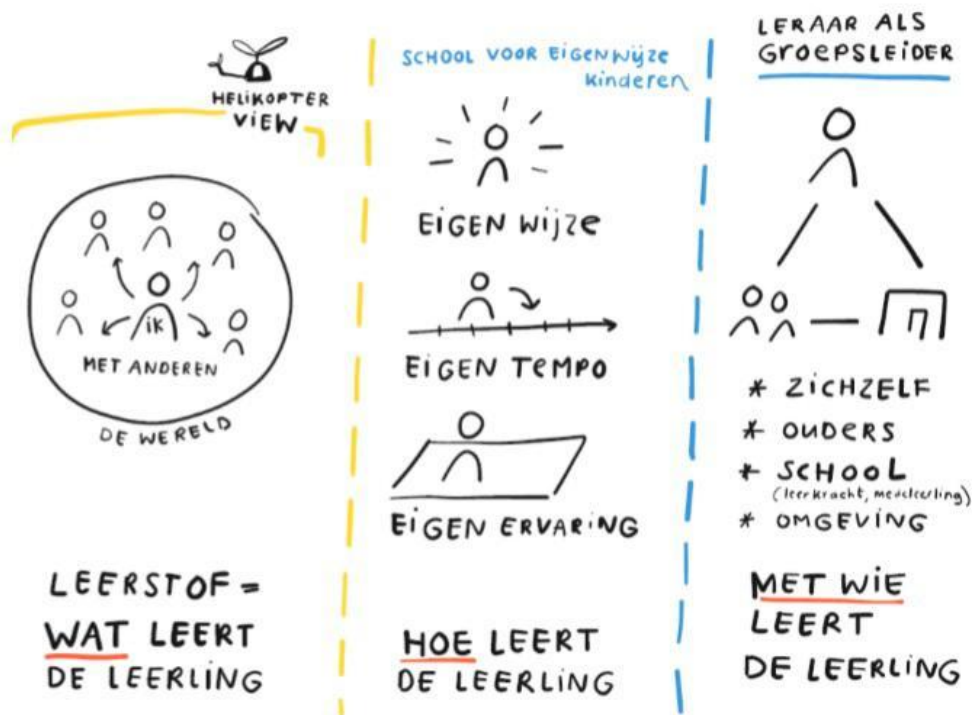 HELIKOPTER
VIEW
iK
MET ANDEREN
DE WERELD
LEERSTOF =
WAT LEERT
DE LEERLING
SCHOOL VOOR EIGENWijZE
kinderen
EIGEN Wijze
EIGEN TEMPO
EIGEN ERVARING
HOE LEERT
DE LEERLING
LERAAR ALS
GROEPSLEIDER
* ZICHZELF
* OUDERS
* SCHOOL
(leerkracht, medeleerling)
* OMGEVING
MET WIE
LEERT
DE LEERLING